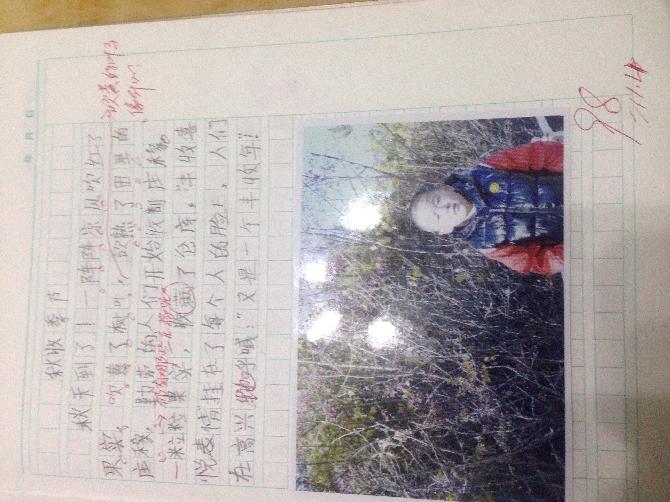 年 月 日
吹黄的叶子
像什么?
秋收季节
秋天到了！一阵阵凉风吹红了
果实，吹黄了树叶，吹熟了田里的
庄稼，勤劳的人们开始收割庄稼。
一粒粒果实，收藏了仓库，丰收喜
悦表情挂在了每个人的脸上，人们
在高兴地呼喊："又是一个丰收年！
98
11.4